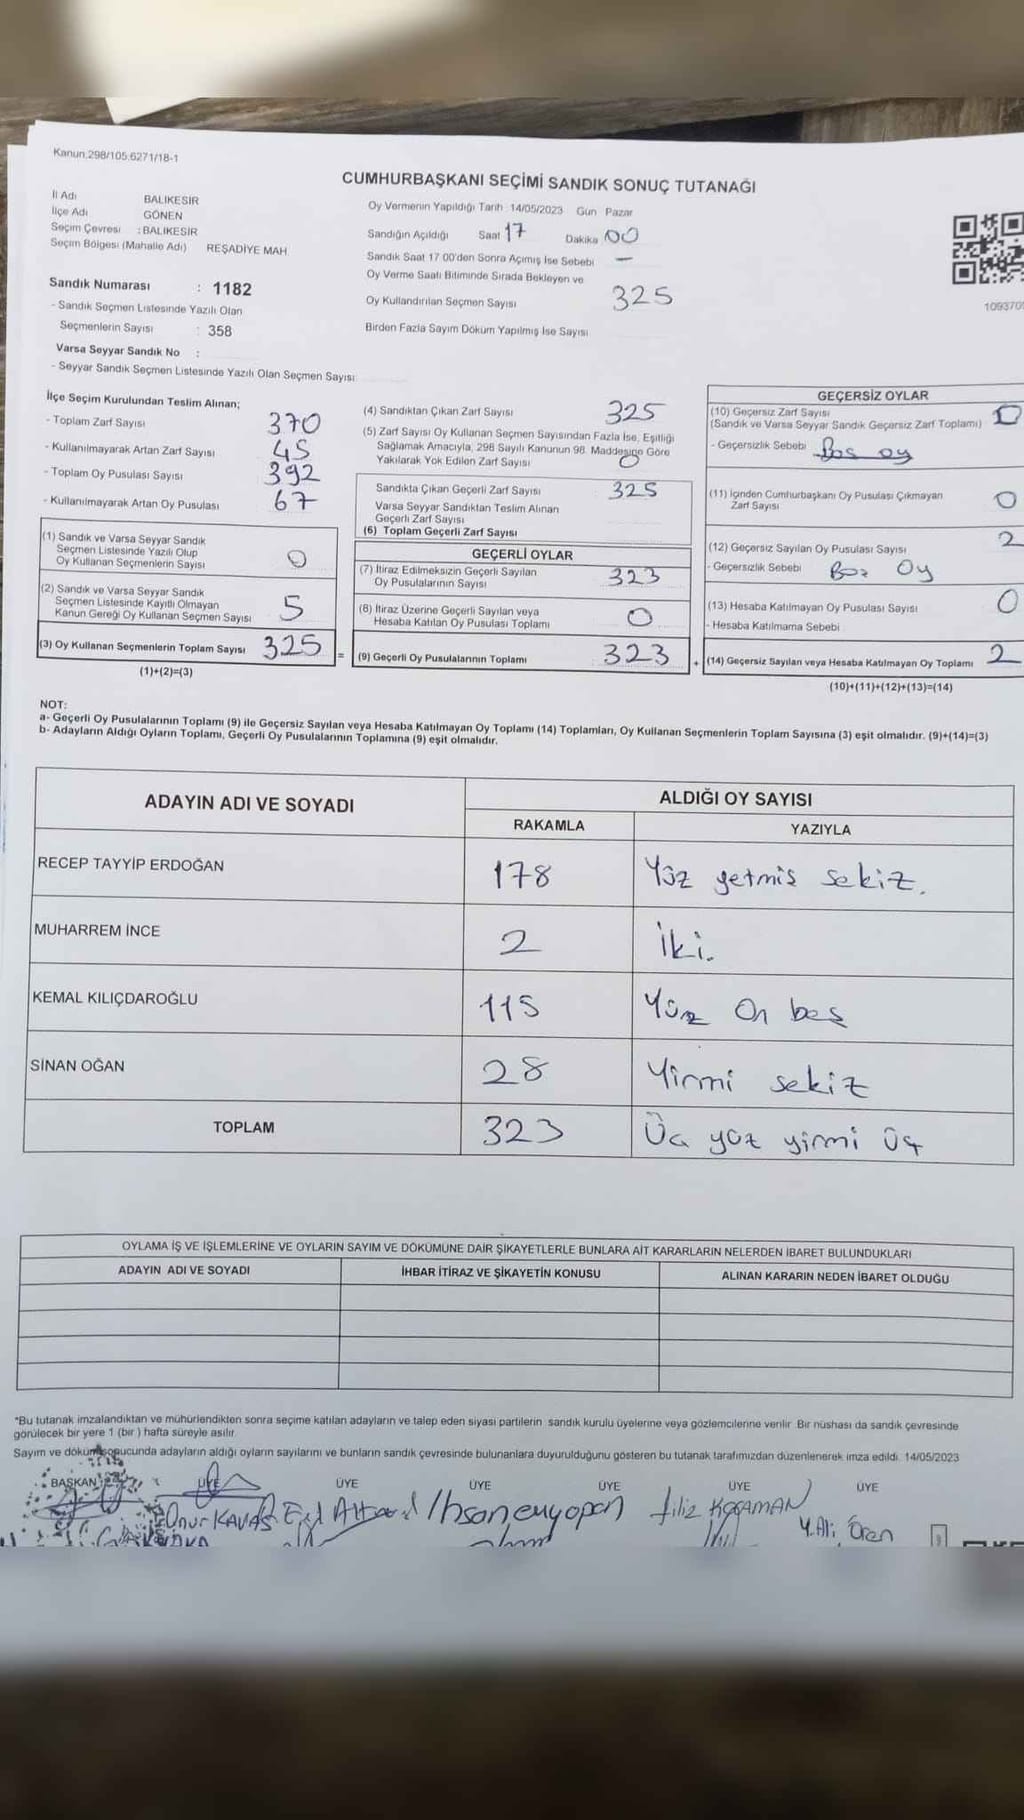 Kanun.298/105.6271/18-1
CUMHURBAŞKANI SEÇİMİ SANDIK SONUÇ TUTANAĞI
İl Adı BALIKESİR
İlçe Adı GÖNEN
Seçim Çevresi : BALIKESİR
Seçim Bölgesi (Mahalle Adı) REŞADİYE MAH.
Oy Vermenin Yapıldığı Tarih : 14/05/2023 Gün Pazar
Sandığın Açıldığı Saat 17 Dakika 00
Sandık Saat 17.00'den Sonra Açımış İse Sebebi —
Oy Verme Saati Bitiminde Sırada Bekleyen ve
Oy Kullandırılan Seçmen Sayısı 325
Birden Fazla Sayım Döküm Yapılmış İse Sayısı
109370
Sandık Numarası : 1182
- Sandık Seçmen Listesinde Yazılı Olan
Seçmenlerin Sayısı : 358
Varsa Seyyar Sandık No :
- Seyyar Sandık Seçmen Listesinde Yazılı Olan Seçmen Sayısı
İlçe Seçim Kurulundan Teslim Alınan;
- Toplam Zarf Sayısı 370
- Kullanılmayarak Artan Zarf Sayısı 45
- Toplam Oy Pusulası Sayısı 392
- Kullanılmayarak Artan Oy Pusulası 67
(1) Sandık ve Varsa Seyyar Sandık
Seçmen Listesinde Yazılı Olup
Oy Kullanan Seçmenlerin Sayısı 0
(2) Sandık ve Varsa Seyyar Sandık
Seçmen Listesinde Kayıtlı Olmayan
Kanun Gereği Oy Kullanan Seçmen Sayısı 5
(3) Oy Kullanan Seçmenlerin Toplam Sayısı 325
(1)+(2)=(3)
=
(4) Sandıktan Çıkan Zarf Sayısı 325
(5) Zarf Sayısı Oy Kullanan Seçmen Sayısından Fazla İse, Eşitliği
Sağlamak Amacıyla, 298 Sayılı Kanunun 98. Maddesine Göre
Yakılarak Yok Edilen Zarf Sayısı 0
Sandıkta Çıkan Geçerli Zarf Sayısı 325
Varsa Seyyar Sandıktan Teslim Alınan
Geçerli Zarf Sayısı
(6) Toplam Geçerli Zarf Sayısı
GEÇERLİ OYLAR
(7) İtiraz Edilmeksizin Geçerli Sayılan
Oy Pusulalarının Sayısı 323
(8) İtiraz Üzerine Geçerli Sayılan veya
Hesaba Katılan Oy Pusulası Toplamı 0
(9) Geçerli Oy Pusulalarının Toplamı 323
+
GEÇERSİZ OYLAR
(10) Geçersiz Zarf Sayısı 0
(Sandık ve Varsa Seyyar Sandık Geçersiz Zarf Toplamı)
- Geçersizlik Sebebi Boş oy
(11) İçinden Cumhurbaşkanı Oy Pusulası Çıkmayan
Zarf Sayısı 0
(12) Geçersiz Sayılan Oy Pusulası Sayısı 2
- Geçersizlik Sebebi Boş Oy
(13) Hesaba Katılmayan Oy Pusulası Sayısı 0
- Hesaba Katılmama Sebebi
(14) Geçersiz Sayılan veya Hesaba Katılmayan Oy Toplamı 2
(10)+(11)+(12)+(13)=(14)
NOT:
a- Geçerli Oy Pusulalarının Toplamı (9) ile Geçersiz Sayılan veya Hesaba Katılmayan Oy Toplamı (14) Toplamları, Oy Kullanan Seçmenlerin Toplam Sayısına (3) eşit olmalıdır. (9)+(14)=(3)
b- Adayların Aldığı Oyların Toplamı, Geçerli Oy Pusulalarının Toplamına (9) eşit olmalıdır.
ADAYIN ADI VE SOYADI ALDIĞI OY SAYISI
RAKAMLA YAZIYLA
RECEP TAYYİP ERDOĞAN 178 Yüz yetmiş sekiz.
MUHARREM İNCE 2 İki.
KEMAL KILIÇDAROĞLU 115 Yüz On beş
SİNAN OĞAN 28 Yirmi sekiz
TOPLAM 323 Üç yüz yirmi üç
OYLAMA İŞ VE İŞLEMLERİNE VE OYLARIN SAYIM VE DÖKÜMÜNE DAİR ŞİKAYETLERLE BUNLARA AİT KARARLARIN NELERDEN İBARET BULUNDUKLARI
ADAYIN ADI VE SOYADI İHBAR İTİRAZ VE ŞİKAYETİN KONUSU ALINAN KARARIN NEDEN İBARET OLDUĞU
*Bu tutanak imzalandıktan ve mühürlendikten sonra seçime katılan adayların ve talep eden siyasi partilerin sandık kurulu üyelerine veya gözlemcilerine verilir. Bir nüshası da sandık çevresinde
görülecek bir yere 1 (bir ) hafta süreyle asılır.
Sayım ve döküm sonucunda adayların aldığı oyların sayılarını ve bunların sandık çevresinde bulunanlara duyurulduğunu gösteren bu tutanak tarafımızdan düzenlenerek imza edildi. 14/05/2023
BAŞKAN ÜYE ÜYE ÜYE ÜYE ÜYE ÜYE
Onur KAVAS Filiz KOCAMAN Y.Ali Ören